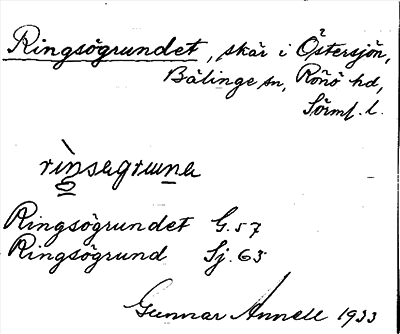 Ringsögrundet, skär i Östersjön,
Bälinge sn, Rönö hd,
Sörml. l.
rìnsagruna
Ringsögrundet G. 57
Ringsögrund Sj. 63
Gunnar Annell 1933